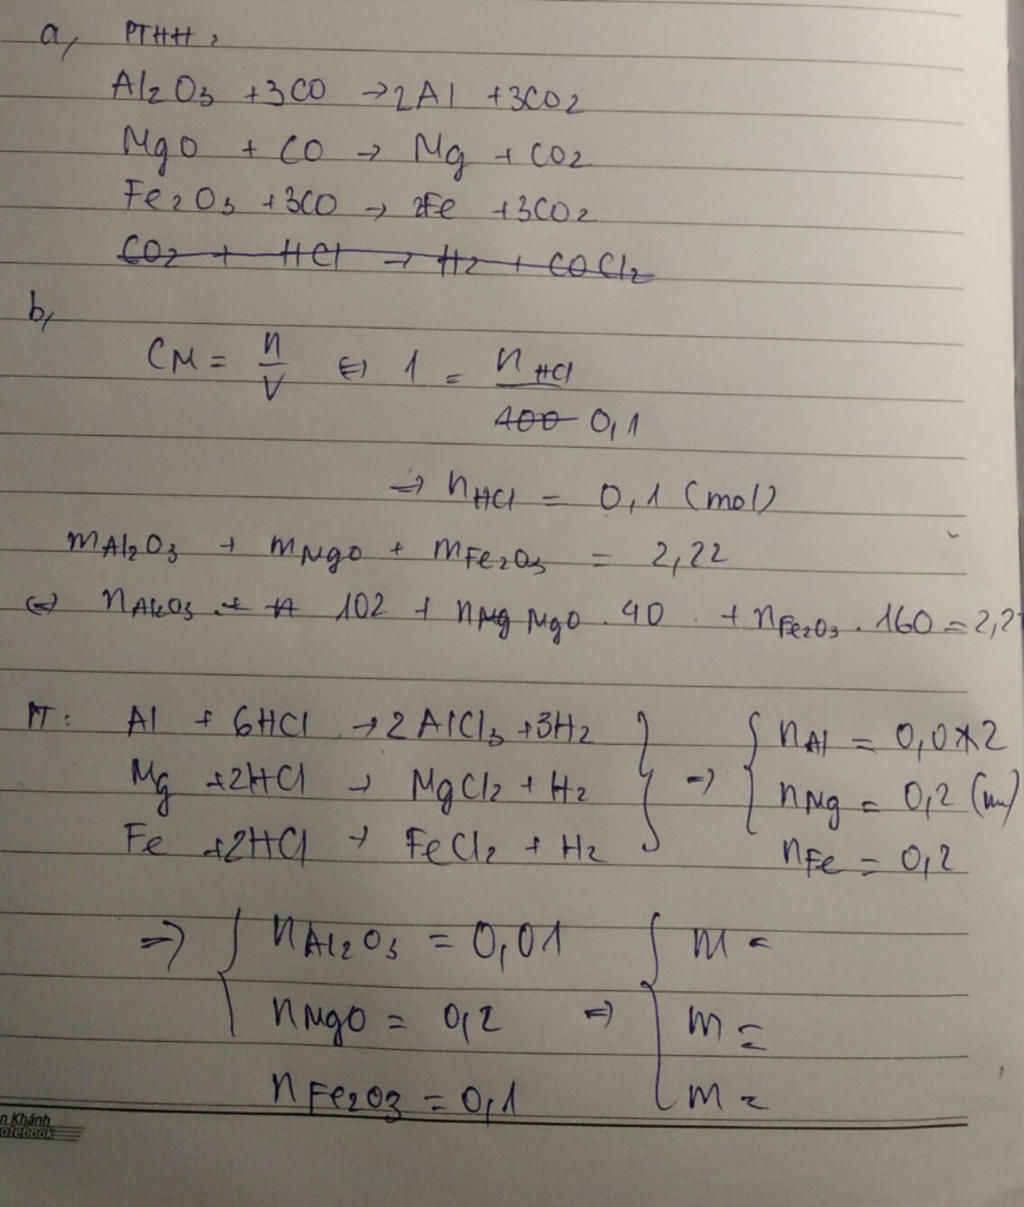 a, PTHH,
Al2O3 +3CO →2Al +3CO2
MgO + CO → Mg + CO2
Fe2O3 +3CO → 2Fe +3CO2
CO2 + HCl → H2 + COCl2
b,
CM = n/V ⇔ 1 = nHCl/0,1
⇒ nHCl = 0,1 (mol)
mAl2O3 + mMgO + mFe2O3 = 2,22
⇔ nAl2O3 . 102 + nMgO . 40 + nFe2O3 . 160 = 2,2
PT: Al + 6HCl → 2AlCl3 +3H2 } ⇒ { nAl = 0,02
Mg +2HCl → MgCl2 + H2 nMg = 0,2 (m)
Fe +2HCl → FeCl2 + H2 nFe = 0,2
⇒ { nAl2O3 = 0,01 { m =
nMgO = 0,2 ⇒ m =
nFe2O3 = 0,1 m =
n Khánh
otebook